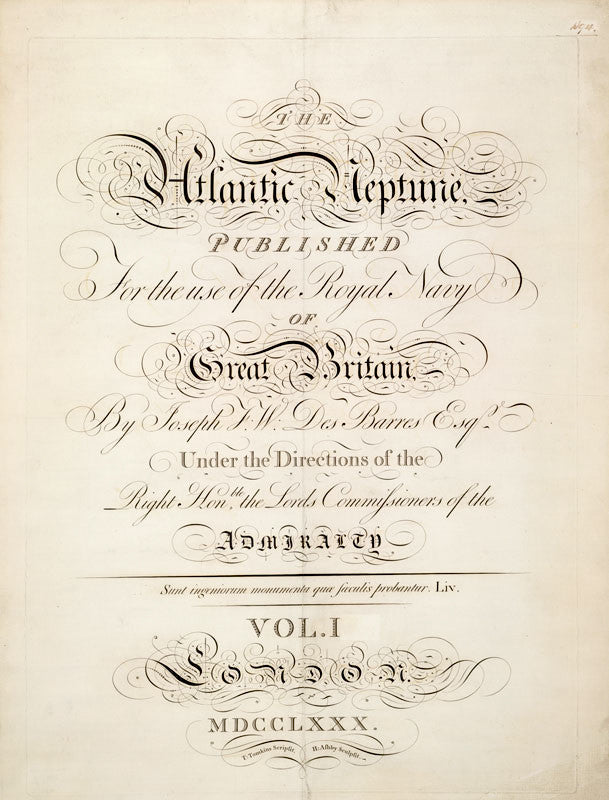 THE
Atlantic Neptune,
PUBLISHED
For the use of the Royal Navy
OF
Great Britain,
By Joseph F. W. Des Barres Esqr.
Under the Directions of the
Right Honble. the Lords Commiſsioners of the
ADMIRALTY
Sunt ingeniorum monumenta quæ ſæculis probantur. LIV.
VOL. I
LONDON.
MDCCLXXX.
T: Tomkins Scripſit. H: Aſhby Sculpſit.